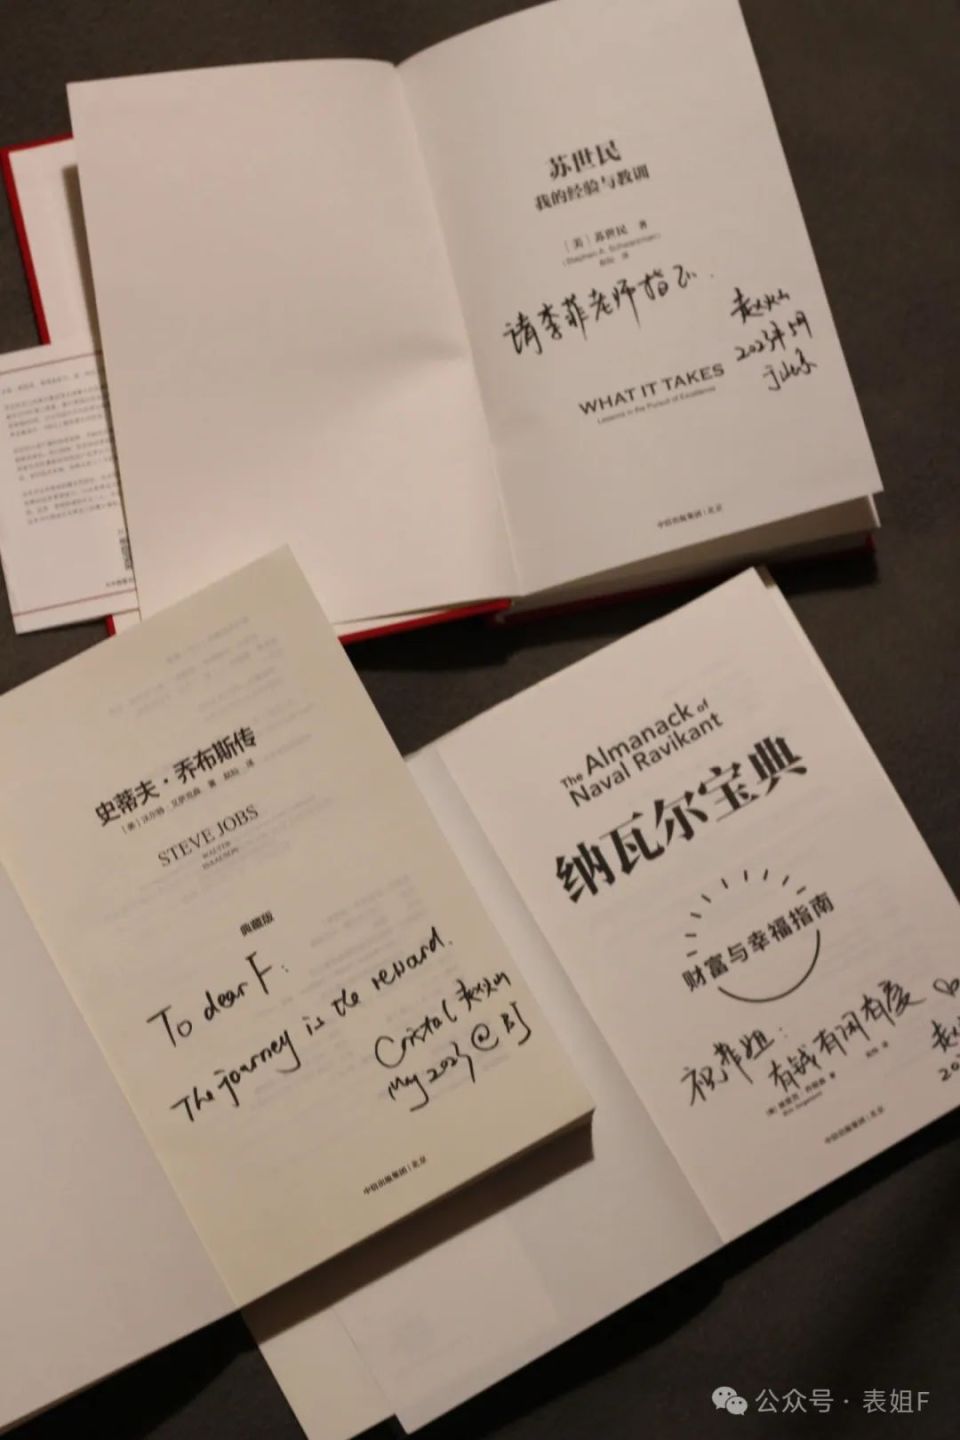 苏世民
我的经验与教训
[美] 苏世民 著
(Stephen A. Schwarzman)
赵灿 译
请李菲老师指正.
赵灿
2023年5月
于北京
WHAT IT TAKES
Lessons in the Pursuit of Excellence
中信出版集团 | 北京
史蒂夫·乔布斯传
[美] 沃尔特·艾萨克森 著 赵灿 译
STEVE JOBS
WALTER
ISAACSON
典藏版
To dear F:
The journey is the reward.
Crystal 赵灿
May 2023 @ BJ
中信出版集团 | 北京
The Almanack of
Naval Ravikant
纳瓦尔宝典
财富与幸福指南
祝菲姐:
有钱有闲有爱
赵灿 译
[美] 埃里克·乔根森 著
Eric Jorgenson
中信出版集团 | 北京
公众号·表姐F